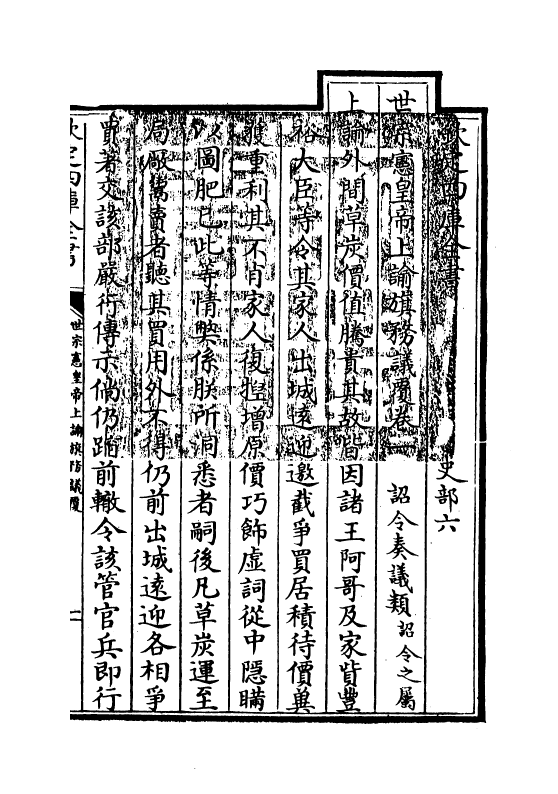 欽定四庫全書 史部六
世宗憲皇帝上諭旗務議覆卷一 詔令奏議類詔令之屬
上諭外間草炭價值騰貴其故皆因諸王阿哥及家貲豐
裕大臣等令其家人出城遠迎邀截爭買居積待價冀
獲重利其不肖家人復揑增原價巧飾虛詞從中隱瞞
以圖肥己此等情弊係朕所洞悉者嗣後凡草炭運至
局廠鬻賣者聽其買用外不得仍前出城遠迎各相爭
買著交該部嚴行傳示倘仍蹈前轍令該管官兵即行
欽定四庫全書 世宗憲皇帝上諭旗務議覆